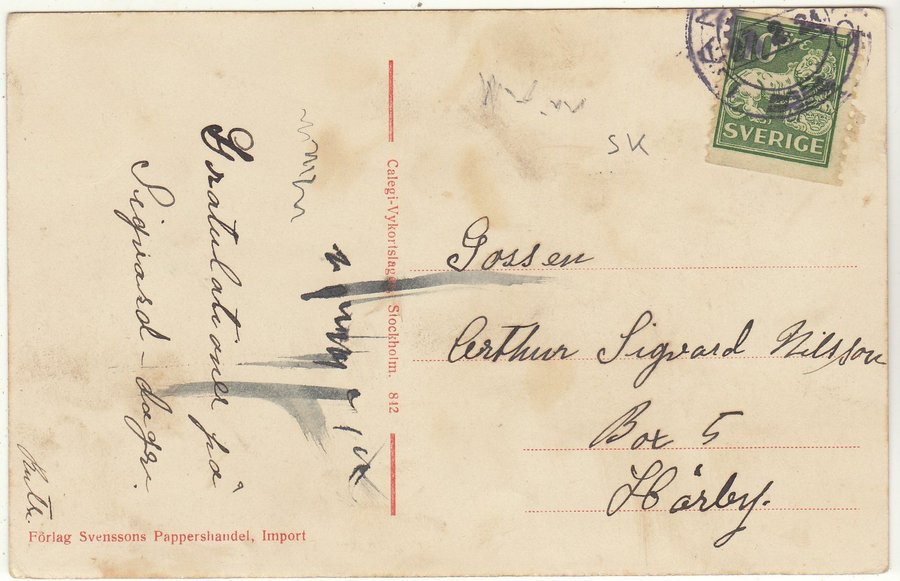 Gratulationer på
Sigvard-dagen.
Calegi-Vykortslager, Stockholm. 842
Förlag Svenssons Pappershandel, Import
SK
SVERIGE
Gossen
Arthur Sigvard Nilsson
Box 5
Hörby.